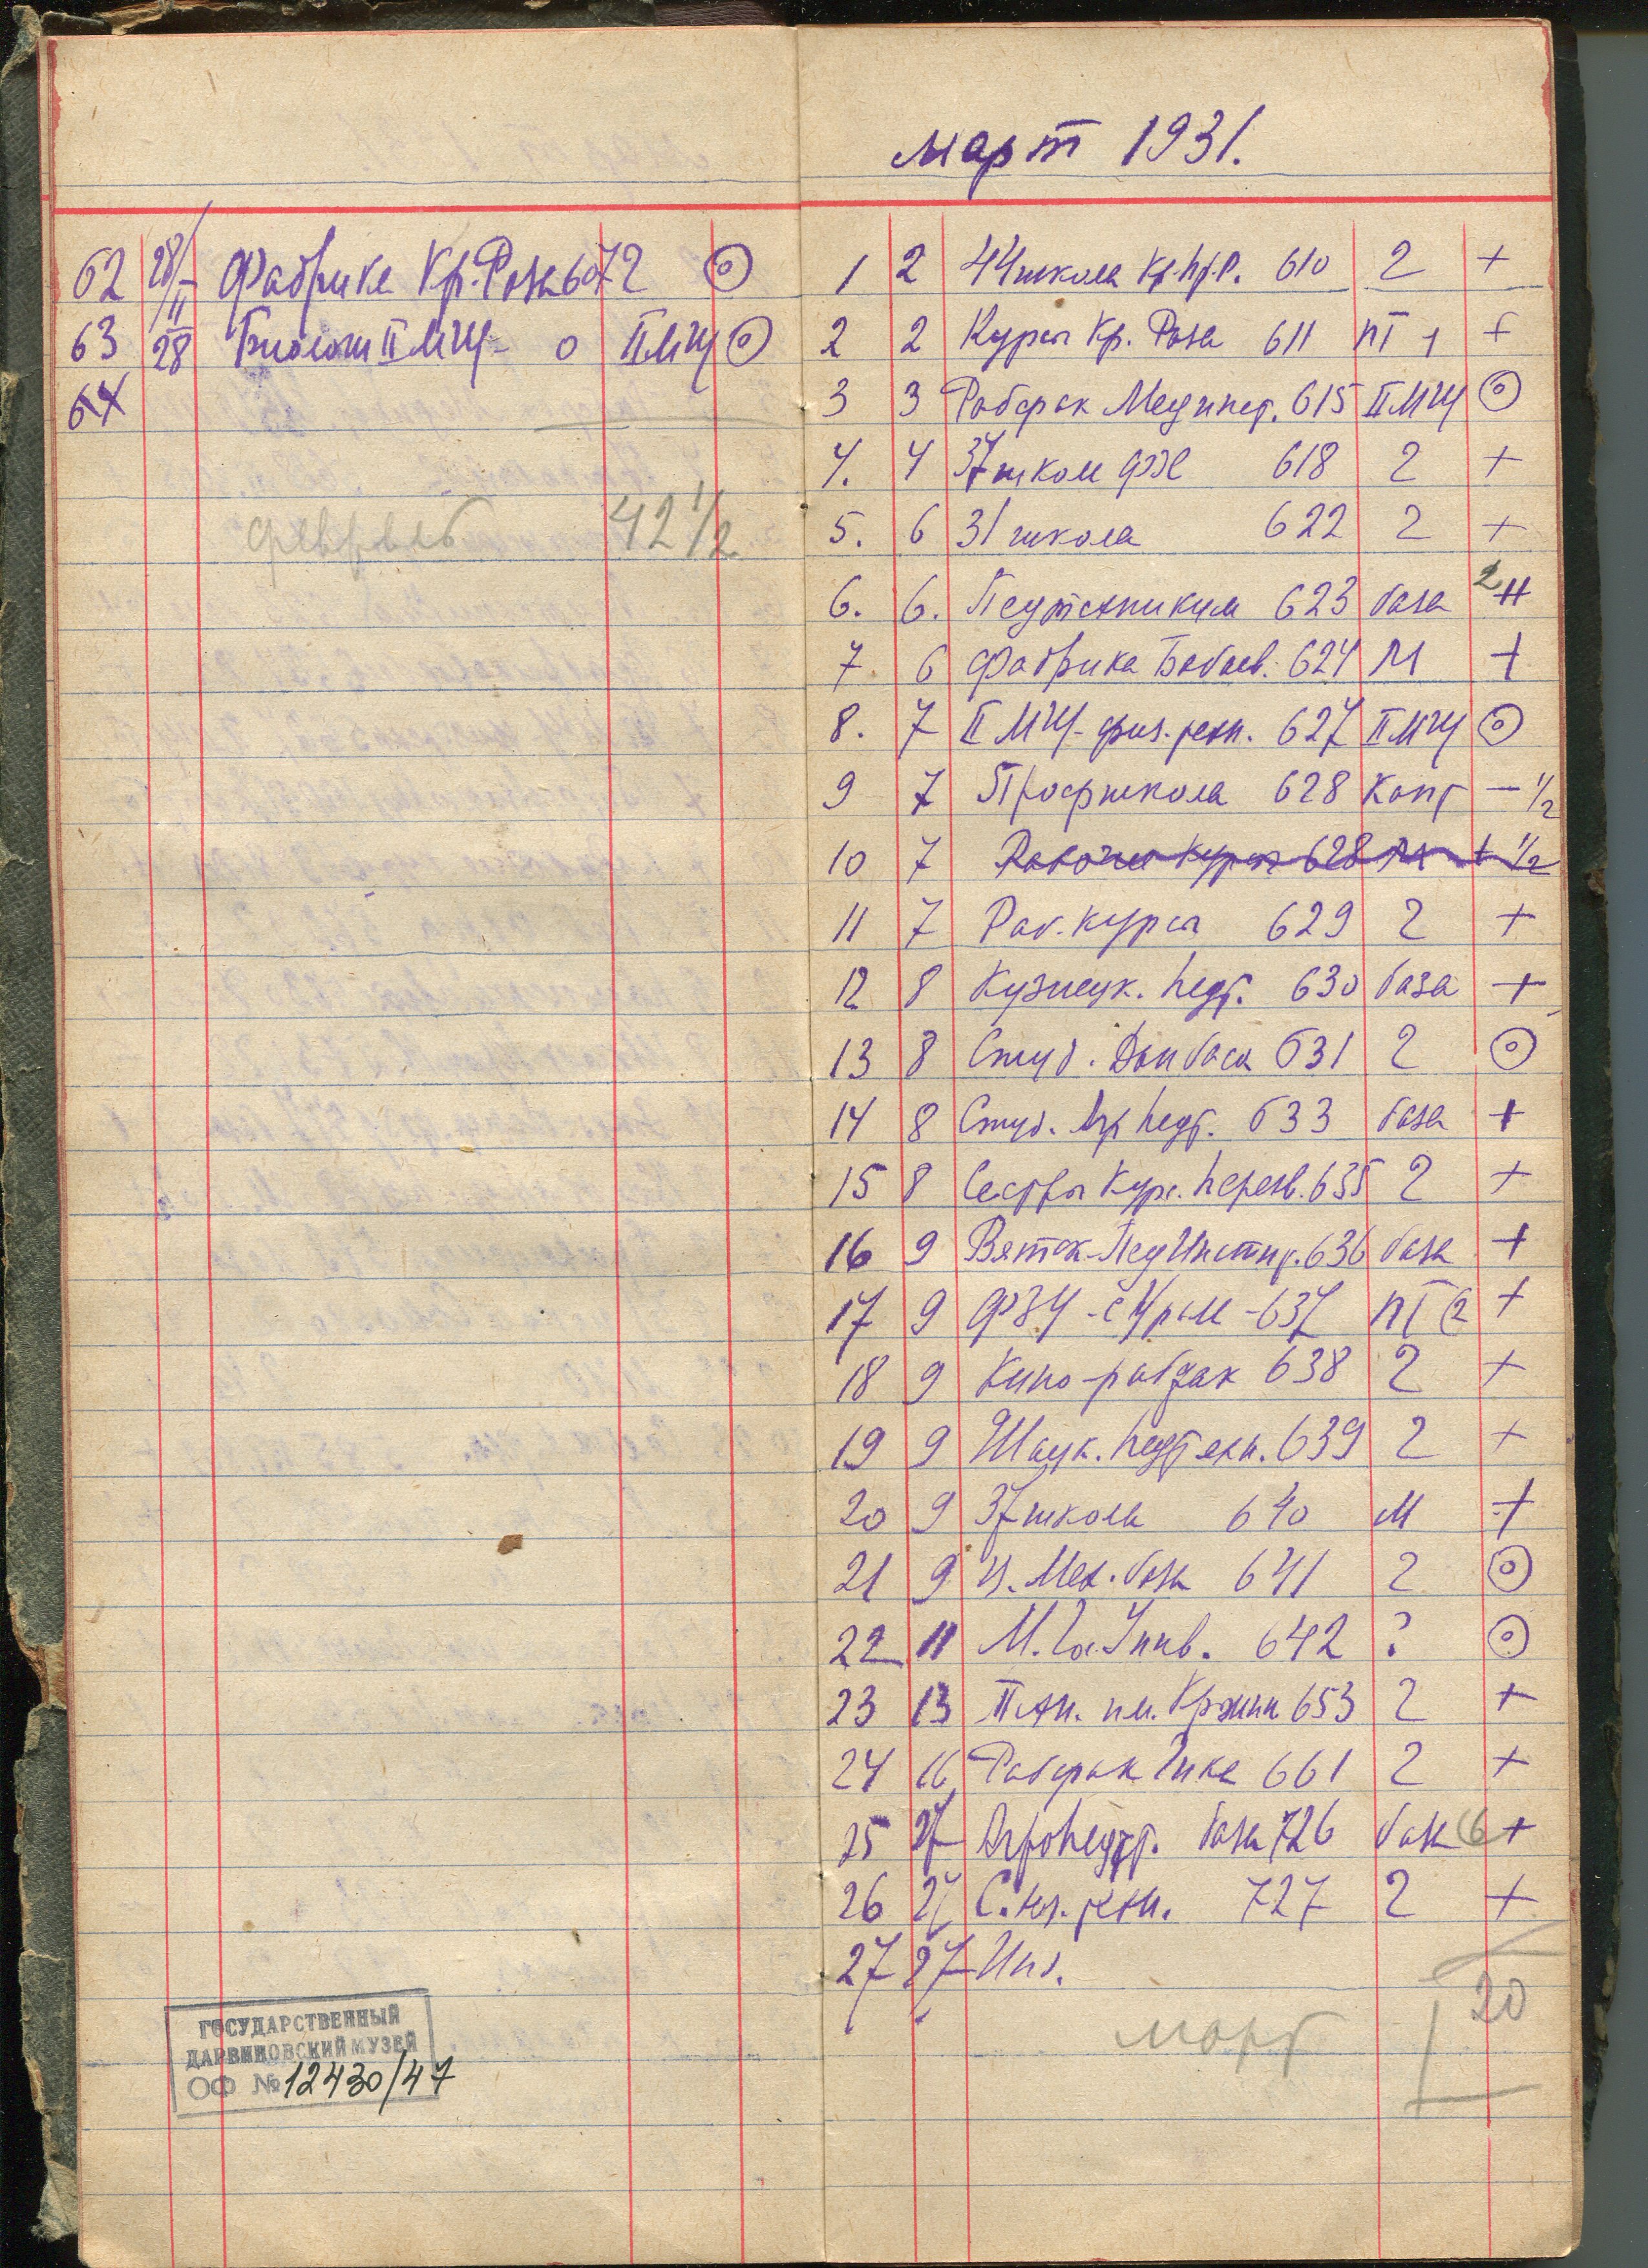 62 28/II Фабрика Кр. Роза 607 2 ⊙
63 28 Биологи II МГУ - 0 II МГУ ⊙
64
февраль 42 1/2
ГОСУДАРСТВЕННЫЙ
ДАРВИНОВСКИЙ МУЗЕЙ
ОФ № 12430/47
март 1931.
1 2 44 школа Кр. Пр. Р. 610 2 +
2 2 Курсы Кр. Роза 611 ПТ 1 +
3 3 Рабфак Мединст. 615 II МГУ ⊙
4. 4 37 школа 618 2 +
5. 6 31 школа 622 2 +
6. 6. Педтехникум 623 база 2 ++
7 6 Фабрика Бабаев. 624 М +
8. 7 II МГУ - физ. техн. 627 II МГУ ⊙
9 7 Профшкола 628 Конт - 1/2
10 7 Рабочие курсы 628 М + 1/2
11 7 Раб. курсы 629 2 +
12 8 Кузнецк. педт. 630 база +
13 8 Студ. Донбаса 631 2 ⊙
14 8 Студ. педт. 633 база +
15 8 Сестры Курс. 635 2 +
16 9 Вятск. ПедИнстит. 636 база +
17 9 ФЗУ - 637 ПТ (2 +
18 9 Кино-рабфак 638 2 +
19 9 педтехн. 639 2 +
20 9 37 школа 640 М +
21 9 база 641 2 ⊙
22 11 М. Гос. Унив. 642 ? ⊙
23 13 им. 653 2 +
24 16 Рабфак 661 2 +
25 27 Агропедт. база 726 база (6 +
26 27 техн. 727 2 +
27 27
март 20